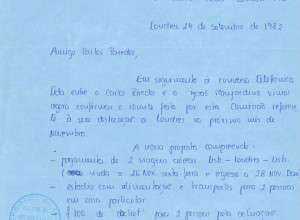 Londres 24 de Setembro de 1982
Amigo Carlos Paredes,
Em seguimento à conversa telefónica
tida entre o Carlos Paredes e o José Monjardino vimos
agora confirmar o convite feito por esta Comissão referen
te à sua deslocação a Londres no próximo mês de
novembro.
A nossa proposta compreende:
- pagamento de 2 viagens aéreas Lisb. - Londres - Lisb.
( vinda = 26 Nov. sexta feira e regresso a 28 Nov. Dom
- estadia com alimentação e transportes para 2 pessoas
em casa particular
- £100 de para 2 pessoas pela